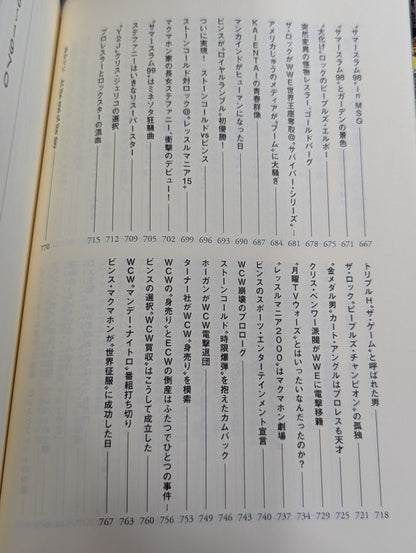 “サマースラム98”in MSG 667
“サマースラム98”とガーデンの景色 671
“大化け”ロックのピープルズ・エルボー 675
突然変異の怪物レスラー、ゴールドバーグ 678
ザ・ロックがWWE世界王座奪取@“サバイバー・シリーズ” 681
アメリカじゅうのメディアが“ブーム”に大騒ぎ 684
KAIENTAIの青春群像 687
マンカインドがヒューマンになった日 690
ビンスが“ロイヤルランブル”初優勝! 693
ついに実現! ストーンコールドvsビンス 696
ストーンコールド対ロック@“レッスルマニア15” 699
マクマホン家の長女ステファニー、衝撃のデビュー! 702
ステファニーはいきなりスーパースター 705
“サマースラム99”はミネソタ狂騒曲 709
“Y2J”クリス・ジェリコの選択 712
プロレスラーとロックスターの混血 715
トリプルH“ザ・ゲーム”と呼ばれた男 718
ザ・ロック“ピープルズ・チャンピオン”の孤独 721
“金メダル男”カート・アングルはプロレスも天才 725
クリス・ベンワー派閥がWWEに電撃移籍 729
“月曜TVウォーズ”とはいったいなんだったのか? 734
“レッスルマニア2000”はマクマホン劇場 737
ビンスのスポーツ・エンターテインメント宣言 740
WCW崩壊のプロローグ 743
ストーンコールド“時限爆弾”を抱えたカムバック 746
ホーガンがWCW電撃退団 749
ターナー社がWCW“身売り”を模索 753
WCWの“身売り”とECWの倒産はふたつでひとつの事件 756
ビンスの選択“WCW買収”はこうして成立した 760
WCW“マンデー・ナイトロ”番組打ち切り 763
ビンス・マクマホンが“世界征服”に成功した日 767
770